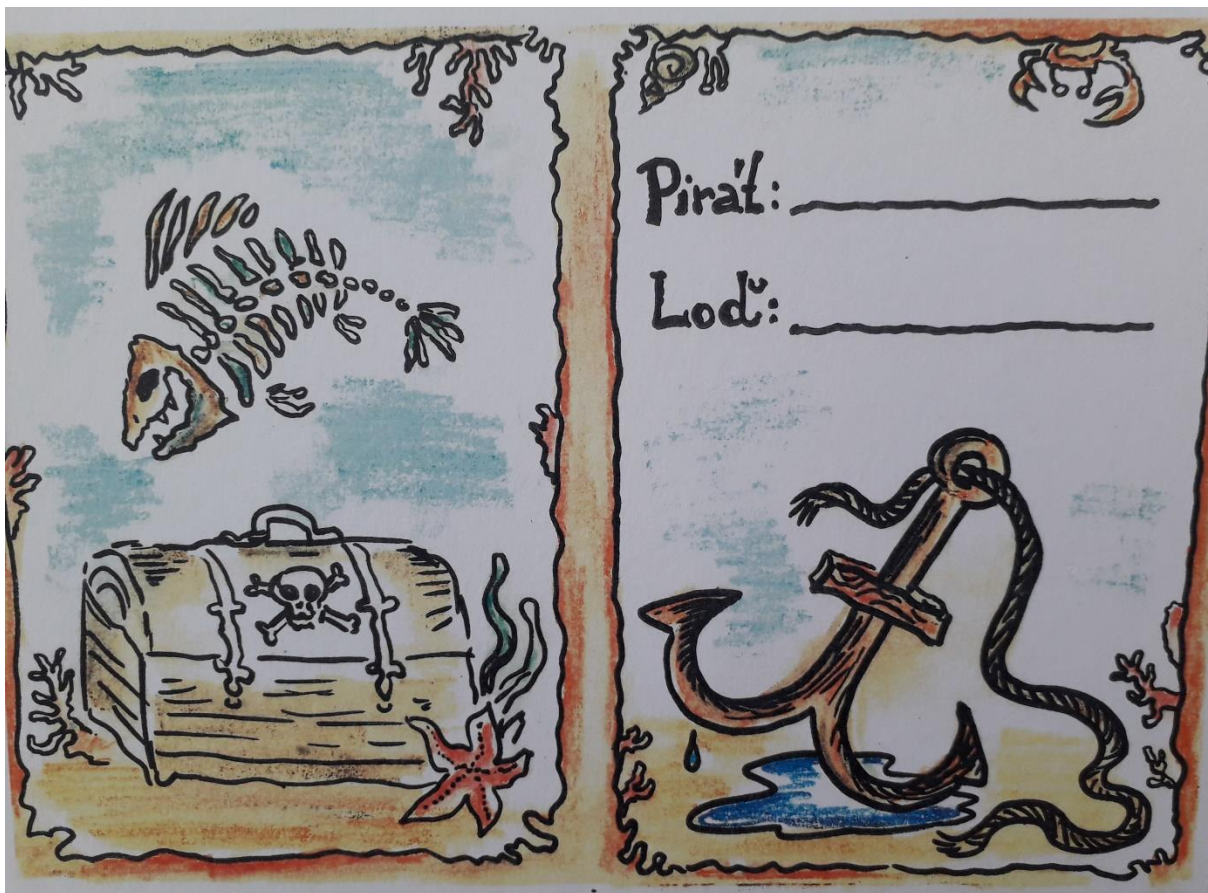 Pirát:
Loď: